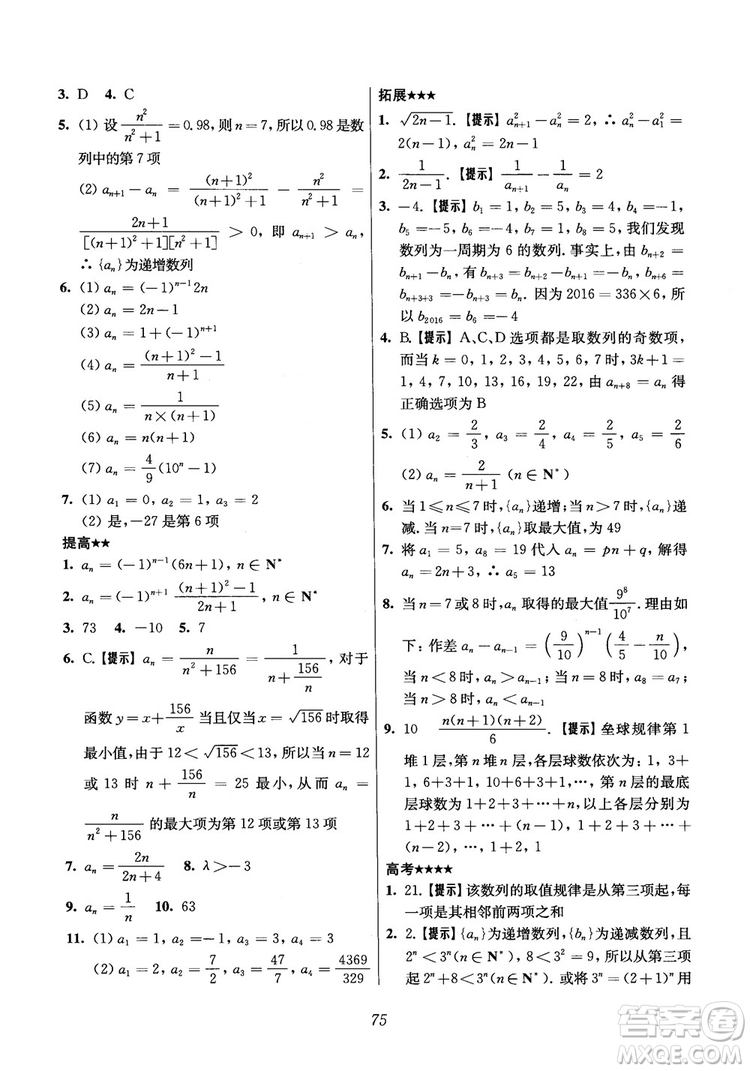 3. D 4. C
5. (1) 设 n²/(n²+1)=0.98,则 n=7,所以 0.98 是数
列中的第 7 项
(2) aₙ₊₁-aₙ = (n+1)²/((n+1)²+1) - n²/(n²+1) =
(2n+1)/([(n+1)²+1][n²+1]) > 0,即 aₙ₊₁ > aₙ,
∴ {aₙ}为递增数列
6. (1) aₙ=(-1)ⁿ⁻¹2n
(2) aₙ=2n-1
(3) aₙ=1+(-1)ⁿ⁺¹
(4) aₙ=((n+1)²-1)/(n+1)
(5) aₙ=1/(n×(n+1))
(6) aₙ=n(n+1)
(7) aₙ=4/9(10ⁿ-1)
7. (1) a₁=0, a₂=1, a₃=2
(2) 是,-27 是第 6 项
提高★★
1. aₙ=(-1)ⁿ⁻¹(6n+1), n∈N*
2. aₙ=(-1)ⁿ⁺¹ ((n+1)²-1)/(2n+1), n∈N*
3. 73 4. -10 5. 7
6. C.【提示】aₙ = n/(n²+156) = 1/(n+156/n),对于
函数 y=x+156/x 当且仅当 x=√156时取得
最小值,由于 12<√156<13,所以当 n=12
或 13 时 n+156/n = 25 最小,从而 aₙ =
n/(n²+156) 的最大项为第 12 项或第 13 项
7. aₙ=2n/(2n+4) 8. λ>-3
9. aₙ=1/n 10. 63
11. (1) a₁=1, a₂=-1, a₃=3, a₄=3
(2) a₁=1, a₂=7/2, a₃=47/7, a₄=4369/329
拓展★★★
1. √(2n-1).【提示】a²ₙ₊₁-a²ₙ=2, a²ₙ-a²₁=
2(n-1), a²ₙ=2n-1
2. 1/(2n-1).【提示】1/aₙ₊₁-1/aₙ=2
3. -4.【提示】b₁=1, b₂=5, b₃=4, b₄=-1,
b₅=-5, b₆=-4, b₇=1, b₈=5,我们发现
数列为一周期为 6 的数列. 事实上,由 bₙ₊₂=
bₙ₊₁-bₙ,有 bₙ₊₃=bₙ₊₂-bₙ₊₁=-bₙ,
bₙ₊₃₊₃=-bₙ₊₃=bₙ. 因为 2016=336×6,所
以 b₂₀₁₆=b₆=-4
4. B.【提示】A、C、D 选项都是取数列的奇数项,
而当 k=0, 1, 2, 3, 4, 5, 6, 7 时,3k+1=
1, 4, 7, 10, 13, 16, 19, 22,由 aₙ₊₈=aₙ 得
正确选项为 B
5. (1) a₂=2/3, a₃=2/4, a₄=2/5, a₅=2/6
(2) aₙ=2/(n+1) (n∈N*)
6. 当 1≤n≤7 时,{aₙ}递增;当 n>7 时,{aₙ}递
减. 当 n=7 时,{aₙ}取最大值,为 49
7. 将 a₁=5, a₈=19 代入 aₙ=pn+q,解得
aₙ=2n+3, ∴ a₅=13
8. 当 n=7 或 8 时,aₙ 取得的最大值 9⁸/10⁷. 理由如
下:作差 aₙ-aₙ₋₁=(9/10)ⁿ⁻¹(4/5-n/10),
当 n<8 时,aₙ>aₙ₋₁;当 n=8 时,a₈=a₇;
当 n>8 时,aₙ<aₙ₋₁
9. 10 n(n+1)(n+2)/6.【提示】垒球规律第 1
堆 1 层,第 n 堆 n 层;各层球数依次为:1, 3+
1, 6+3+1, 10+6+3+1,…,第 n 层的最底
层球数为 1+2+3+…+n,以上各层分别为
1+2+3+…+(n-1),…,1+2+3, 1+2, 1
高考★★★★
1. 21.【提示】该数列的取值规律是从第三项起,每
一项是其相邻前两项之和
2. 2.【提示】{aₙ}为递增数列,{bₙ}为递减数列,且
2ⁿ<3ⁿ(n∈N*),8<3²=9. 所以从第三项
起 2ⁿ+8<3ⁿ(n∈N*). 或将 3ⁿ=(2+1)ⁿ 用
75
答案圈
MXQE.COM